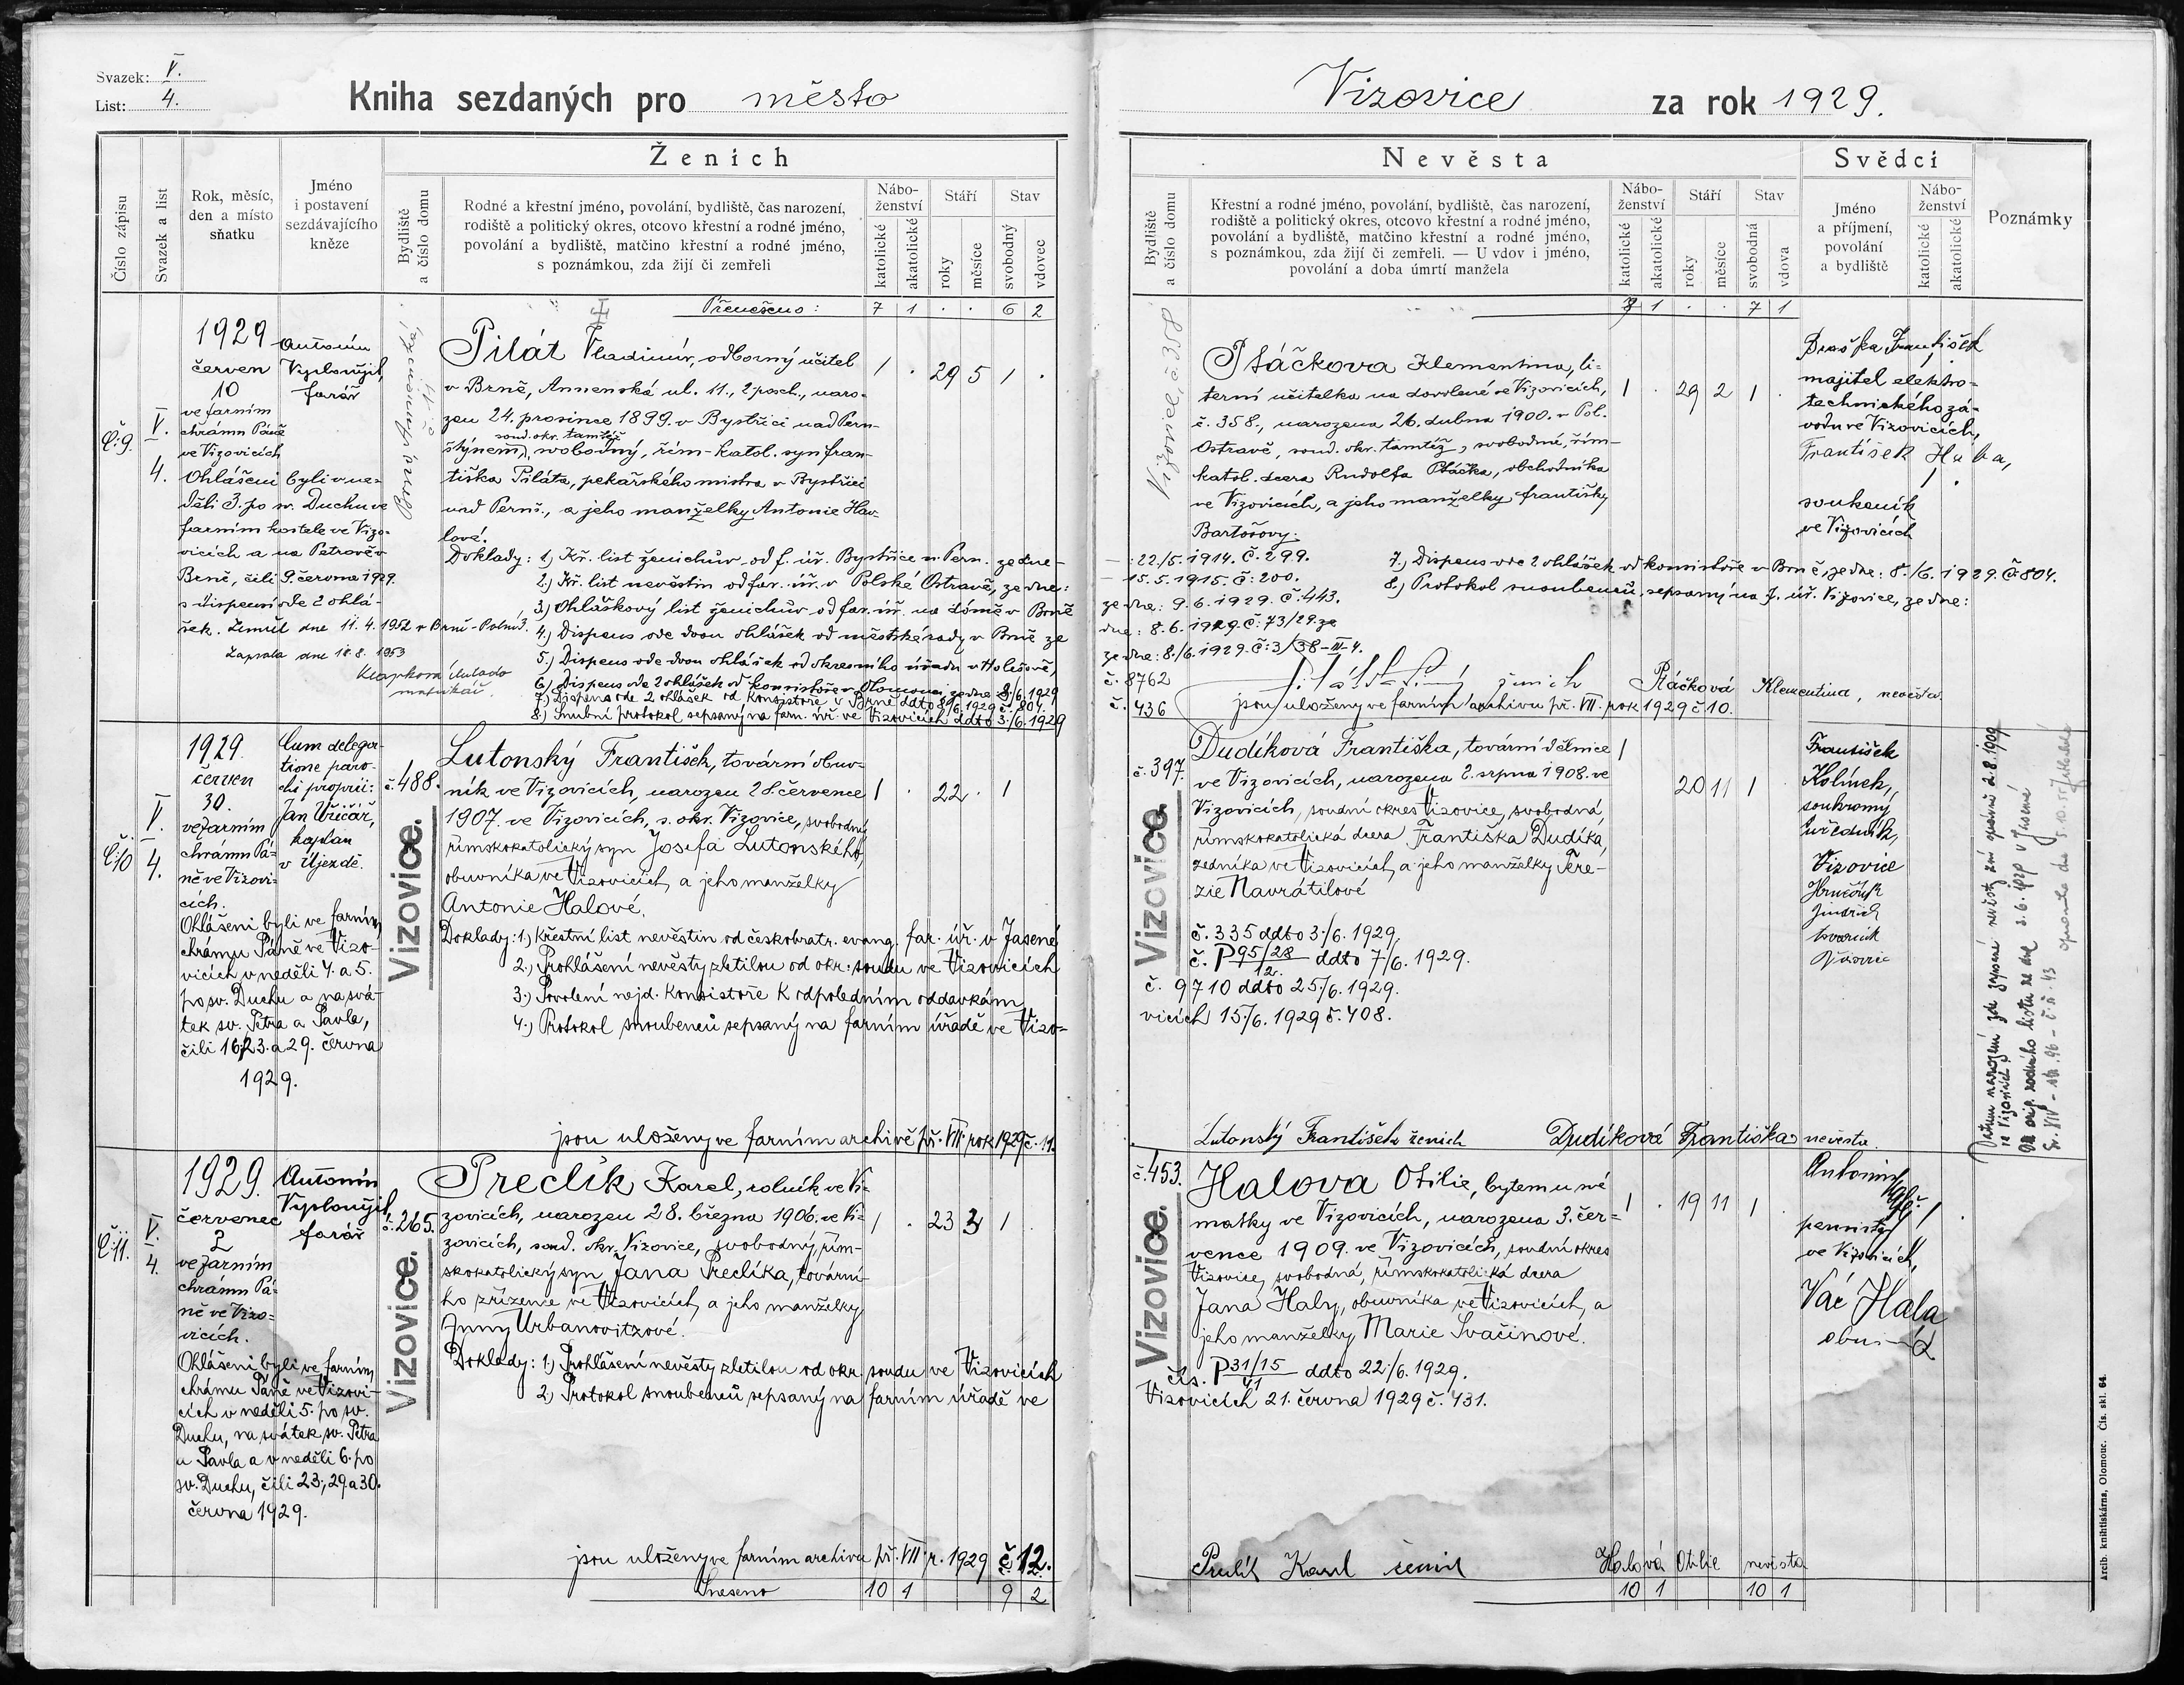 Svazek: V.
List: 4.
Kniha sezdaných pro město
Vizovice za rok 1929.
Číslo zápisu
Svazek a list
Rok, měsíc,
den a místo
sňatku
Jméno
i postavení
sezdávajícího
kněze
Ženich
Bydliště
a číslo domu
Rodné a křestní jméno, povolání, bydliště, čas narození,
rodiště a politický okres, otcovo křestní a rodné jméno,
povolání a bydliště, matčino křestní a rodné jméno,
s poznámkou, zda žijí či zemřeli
Nábo-
ženství
katolické
akatolické
Stáří
roky
měsíce
Stav
svobodný
vdovec
Nevěsta
Bydliště
a číslo domu
Křestní a rodné jméno, povolání, bydliště, čas narození,
rodiště a politický okres, otcovo křestní a rodné jméno,
povolání a bydliště, matčino křestní a rodné jméno,
s poznámkou, zda žijí či zemřeli. — U vdov i jméno,
povolání a doba úmrtí manžela
Nábo-
ženství
katolické
akatolické
Stáří
roky
měsíce
Stav
svobodná
vdova
Svědci
Jméno
a příjmení,
povolání
a bydliště
Nábo-
ženství
katolické
akatolické
Poznámky
Přenešeno: 7 1 . . 6 2
1 . . 7 1
Č:9.
V.
4.
1929
červen
10
ve farním
chrámu Páně
ve Vizovicích
Ohlášeni byli v ne-
děli 3. po sv. Duchu ve
farním kostele ve Vizo-
vicích a na Petrově v
Brně, čili 9. června 1929.
s dispensí ode 2 ohlá-
šek. Zemřel dne 11.4.1952 v Brně-
Zapsala dne 18.8.1953
matrikář.
Antonín
Vyplouyil,
farář
Pilát Vladimír, odborný učitel
v Brně, Annenská ul. 11., 2 posch., naro-
zen 24. prosince 1899. v Bystřici nad Pern-
soud. okr. tamtéž
štýnem, svobodný, řím-katol. syn Fran-
tiška Piláta, pekařského mistra v Bystřici
nad Pernš., a jeho manželky Antonie Hav-
lové.
1 . 29 5 1 .
Doklady: 1.) Kř. list ženichův od f. úř. Bystřice n. Pern. ze dne-
2.) Kř. list nevěstin od far. úř. v Polské Ostravě, ze dne:
3.) Ohláškový list ženichův od far. úř. na dómě v Brně
4.) Dispens ode dvou ohlášek od městské rady v Brně ze
5.) Dispens ode dvou ohlášek od okresního úřadu v Holešově,
6.) Dispens ode 2 ohlášek od konsistoře v Olomouci, ze dne 8./6.1929
7.) Dispens ode 2 ohlášek od konsistoře v Brně ddto 8/6.1929 č. 804.
8.) Snubní protokol sepsaný na farn. úř. ve Vizovicích ddto 3./6.1929
Vizovice, č. 358
Ptáčkova Klementina, li-
terní učitelka na dovolené ve Vizovicích,
č. 358., narozena 26. dubna 1900. v Pol.
Ostravě, soud. okr. tamtéž, svobodná, řím-
katol. dcera Rudolfa Ptáčka, obchodníka
ve Vizovicích, a jeho manželky Františky
Bartošovy.
1 . 29 2 1 .
František
majitel elektro-
technického zá-
vodu ve Vizovicích,
František Huba,
soukeník
ve Vizovicích
: 22/5.1914. Č. 299.
15.5.1915. č: 200.
ze dne: 9.6.1929. č:443.
dne: 8.6.1929. č: 73/29. ze
ze dne: 8./6.1929. č: 3/38-III-4.
č. 8762
č. 436
7.) Dispens ode 2 ohlášek od konsistoře v Brně, ze dne: 8./6. 1929. č 804.
8.) Protokol snoubenců, sepsaný na f. úř. Vizovice, ze dne:
ženich Ptáčková Klementina, nevěsta.
jsou uloženy ve farním archivu př. VII. rok 1929 č 10.
Č:10
V.
4.
1929.
červen
30.
ve farním
chrámu Pá-
ně ve Vizovi-
cích.
Ohlášeni byli ve farním
chrámu Páně ve Vizo-
vicích v neděli 4. a 5.
po sv. Duchu a na svá-
tek sv. Petra a Pavla,
čili 16, 23. a 29. června
1929.
Cum delega-
tione paro-
chi proprii:
Jan Uřičář,
kaplan
v Újezdě.
č. 488.
Vizovice.
Lutonský František, tovární obuv-
ník ve Vizovicích, narozen 28. července
1907. ve Vizovicích, s. okr. Vizovice, svobodný
římskokatolický syn Josefa Lutonského,
obuvníka ve Vizovicích, a jeho manželky
Antonie Halové.
1 . 22 . 1
Doklady: 1.) Křestní list nevěstin od českobratr. evang. far. úř. v Jasené
2.) Prohlášení nevěsty zletilou od okr. soudu ve Vizovicích
3.) Povolení nejd. Konsistoře k odpoledním oddavkám
4.) Protokol snoubenců sepsaný na farním úřadě ve Vizo-
jsou uloženy ve farním archivě př. VII. rok 1929 č. 11.
č. 397.
Vizovice.
Dudíková Františka, tovární dělnice
ve Vizovicích, narozena 2. srpna 1908. ve
Vizovicích, soudní okres Vizovice, svobodná,
římskokatolická dcera Františka Dudíka,
zedníka ve Vizovicích, a jeho manželky Tere-
zie Navrátilové
1 20 11 1
č. 335 ddto 3./6. 1929.
č. P 95/28 ddto 7/6. 1929.
12.
č. 9710 ddto 25./6. 1929.
vicích 15./6. 1929 č. 408.
František
Kolínek,
soukromý
úředník,
Vizovice
Jindřich
Vizovice
Datum narození zde zapsané nevěsty zní správně 2.8.1909
ve Vizovicích
Dle orig. rodného listu ze dne 3.6. v Jasené
Lutonský František ženich Dudíková Františka nevěsta.
Č:11.
V.
4.
1929.
červenec
2
ve farním
chrámu Pá-
ně ve Vizo-
vicích.
Ohlášeni byli ve farním
chrámu Páně ve Vizovi-
cích v neděli 5. po sv.
Duchu, na svátek sv. Petra
a Pavla a v neděli 6. po
sv. Duchu, čili 23., 29. a 30.
června 1929.
Antonín
Vyplouyil,
farář
č. 265.
Vizovice.
Preclík Karel, rolník ve Vi-
zovicích, narozen 28. března 1906. ve Vi-
zovicích, soud. okr. Vizovice, svobodný, řím-
skokatolický syn Jana Preclíka, tovární-
ho zřízence ve Vizovicích, a jeho manželky
Anny Urbanovitzové.
1 . 23 3 1
Doklady: 1.) Prohlášení nevěsty zletilou od okr. soudu ve Vizovicích
2.) Protokol snoubenců sepsaný na farním úřadě ve
jsou uloženy ve farním archivu př. VII. r. 1929 č. 12.
Sneseno 10 1 9 2
č. 453.
Vizovice.
Halova Otilie, bytem u své
matky ve Vizovicích, narozena 3. čer-
vence 1909. ve Vizovicích, soudní okres
Vizovice, svobodná, římskokatolická dcera
Jana Haly, obuvníka ve Vizovicích, a
jeho manželky Marie Svačinové.
1 . 19 11 1 .
čís. P 31/15 ddto 22./6. 1929.
41
Vizovicích 21. června 1929 č. 431.
Antonín
ve Vizovicích,
Hala
Karel ženich Halová Otilie nevěsta
10 1 10 1
Arcib. knihtiskárna, Olomouc. Čís. skl. 64.